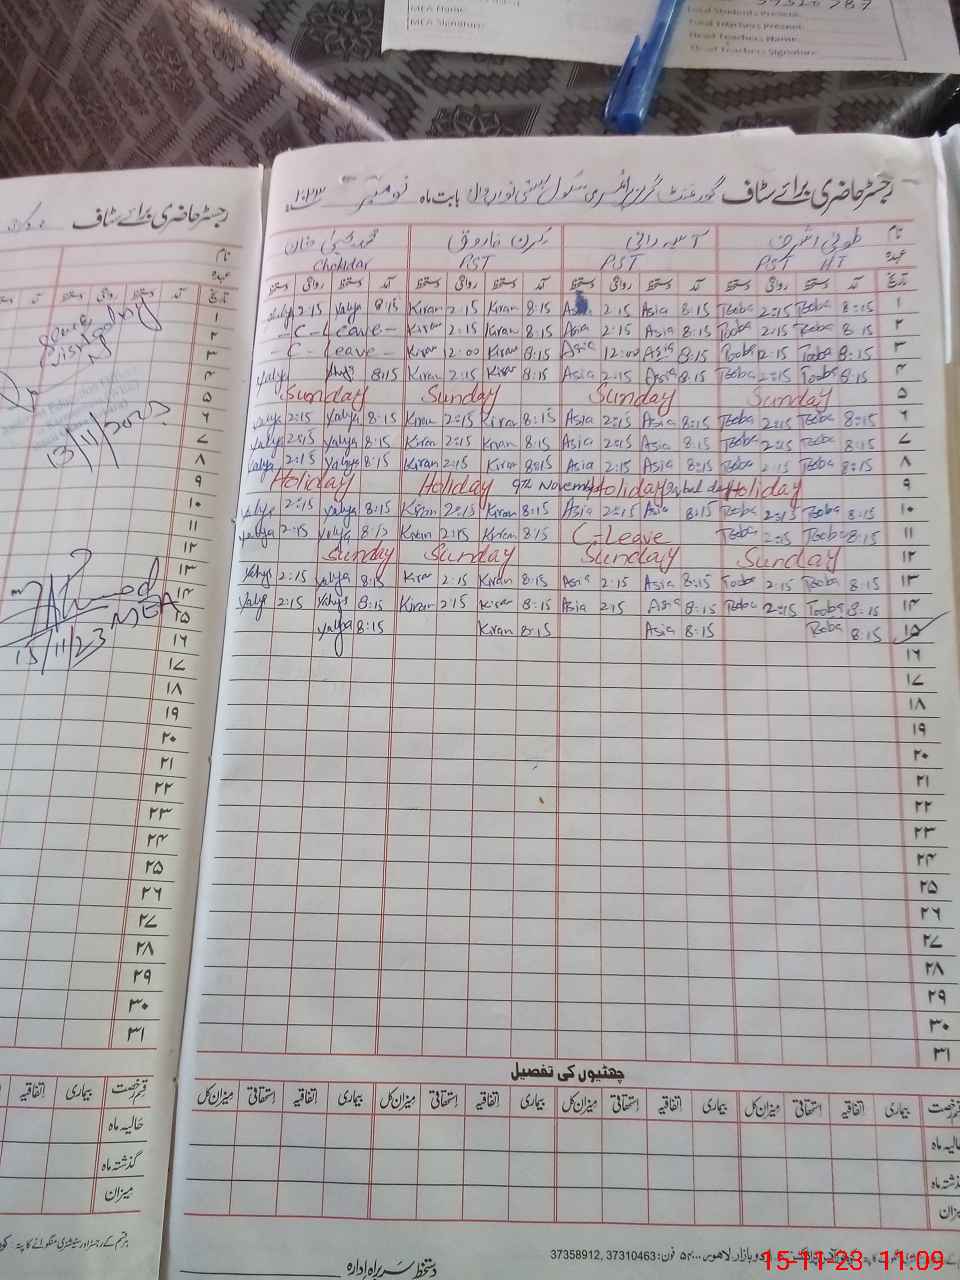 MEA Name:
MEA Signature:
Total Students Present:
Total Teachers Present:
Head Teachers Name:
Head Teachers Signature:
رجسٹر حاضری برائے سٹاف
رجسٹر حاضری برائے سٹاف گورنمنٹ گرلز پرائمری سکول بستی نواں بابت ماہ نومبر ۲۰۲۳ء
نام طوبیٰ اشرف آسیہ رانی کرن فاروق محمد یحییٰ خان
عہدہ PST HT PST PST Chokidar
تاریخ آمد دستخط روانگی دستخط آمد دستخط روانگی دستخط آمد دستخط روانگی دستخط آمد دستخط روانگی دستخط
Yahya 2:15 Yahya 8:15 Kiran 2:15 Kiran 8:15 Asia 2:15 Asia 8:15 Tooba 2:15 Tooba 8:15 ۱
- C - Leave - Kiran 2:15 Kiran 8:15 Asia 2:15 Asia 8:15 Tooba 2:15 Tooba 8:15 ۲
- C - Leave - Kiran 12:00 Kiran 8:15 Asia 12:00 Asia 8:15 Tooba 12:15 Tooba 8:15 ۳
Yahya Yahya 8:15 Kiran 2:15 Kiran 8:15 Asia 2:15 Asia 8:15 Tooba 2:15 Tooba 8:15 ۴
Sunday Sunday Sunday Sunday ۵
Yahya 2:15 Yahya 8:15 Kiran 2:15 Kiran 8:15 Asia 2:15 Asia 8:15 Tooba 2:15 Tooba 8:15 ۶
Yahya 2:15 Yahya 8:15 Kiran 2:15 Kiran 8:15 Asia 2:15 Asia 8:15 Tooba 2:15 Tooba 8:15 ۷
Yahya 2:15 Yahya 8:15 Kiran 2:15 Kiran 8:15 Asia 2:15 Asia 8:15 Tooba 2:15 Tooba 8:15 ۸
Holiday Holiday 9th November Holiday Iqbal day Holiday ۹
Yahya 2:15 Yahya 8:15 Kiran 2:15 Kiran 8:15 Asia 2:15 Asia 8:15 Tooba 2:15 Tooba 8:15 ۱۰
Yahya 2:15 Yahya 8:15 Kiran 2:15 Kiran 8:15 C-Leave Tooba 2:15 Tooba 8:15 ۱۱
Sunday Sunday Sunday Sunday ۱۲
Yahya 2:15 Yahya 8:15 Kiran 2:15 Kiran 8:15 Asia 2:15 Asia 8:15 Tooba 2:15 Tooba 8:15 ۱۳
Yahya 2:15 Yahya 8:15 Kiran 2:15 Kiran 8:15 Asia 2:15 Asia 8:15 Tooba 2:15 Tooba 8:15 ۱۴
Yahya 8:15 Kiran 8:15 Asia 8:15 Tooba 8:15 ۱۵
۱۶
۱۷
۱۸
۱۹
۲۰
۲۱
۲۲
۲۳
۲۴
۲۵
۲۶
۲۷
۲۸
۲۹
۳۰
۳۱
چھٹیوں کی تفصیل
قسم رخصت بیماری اتفاقیہ استحقاقی میزان کل بیماری اتفاقیہ استحقاقی میزان کل بیماری اتفاقیہ استحقاقی میزان کل بیماری اتفاقیہ استحقاقی میزان کل
حالیہ ماہ
گذشتہ ماہ
میزان
دستخط سربراہ ادارہ
فون: 37310463, 37358912
نام
عہدہ
تاریخ آمد دستخط روانگی دستخط
۱
۲
۳
۴
۵
۶
۷
۸
۹
۱۰
۱۱
۱۲
۱۳
۱۴
۱۵
۱۶
۱۷
۱۸
۱۹
۲۰
۲۱
۲۲
۲۳
۲۴
۲۵
۲۶
۲۷
۲۸
۲۹
۳۰
۳۱
13/11/2023
Ahmad
MEA
15/11/23
قسم رخصت بیماری اتفاقیہ
حالیہ ماہ
گذشتہ ماہ
میزان
15-11-23 11:09